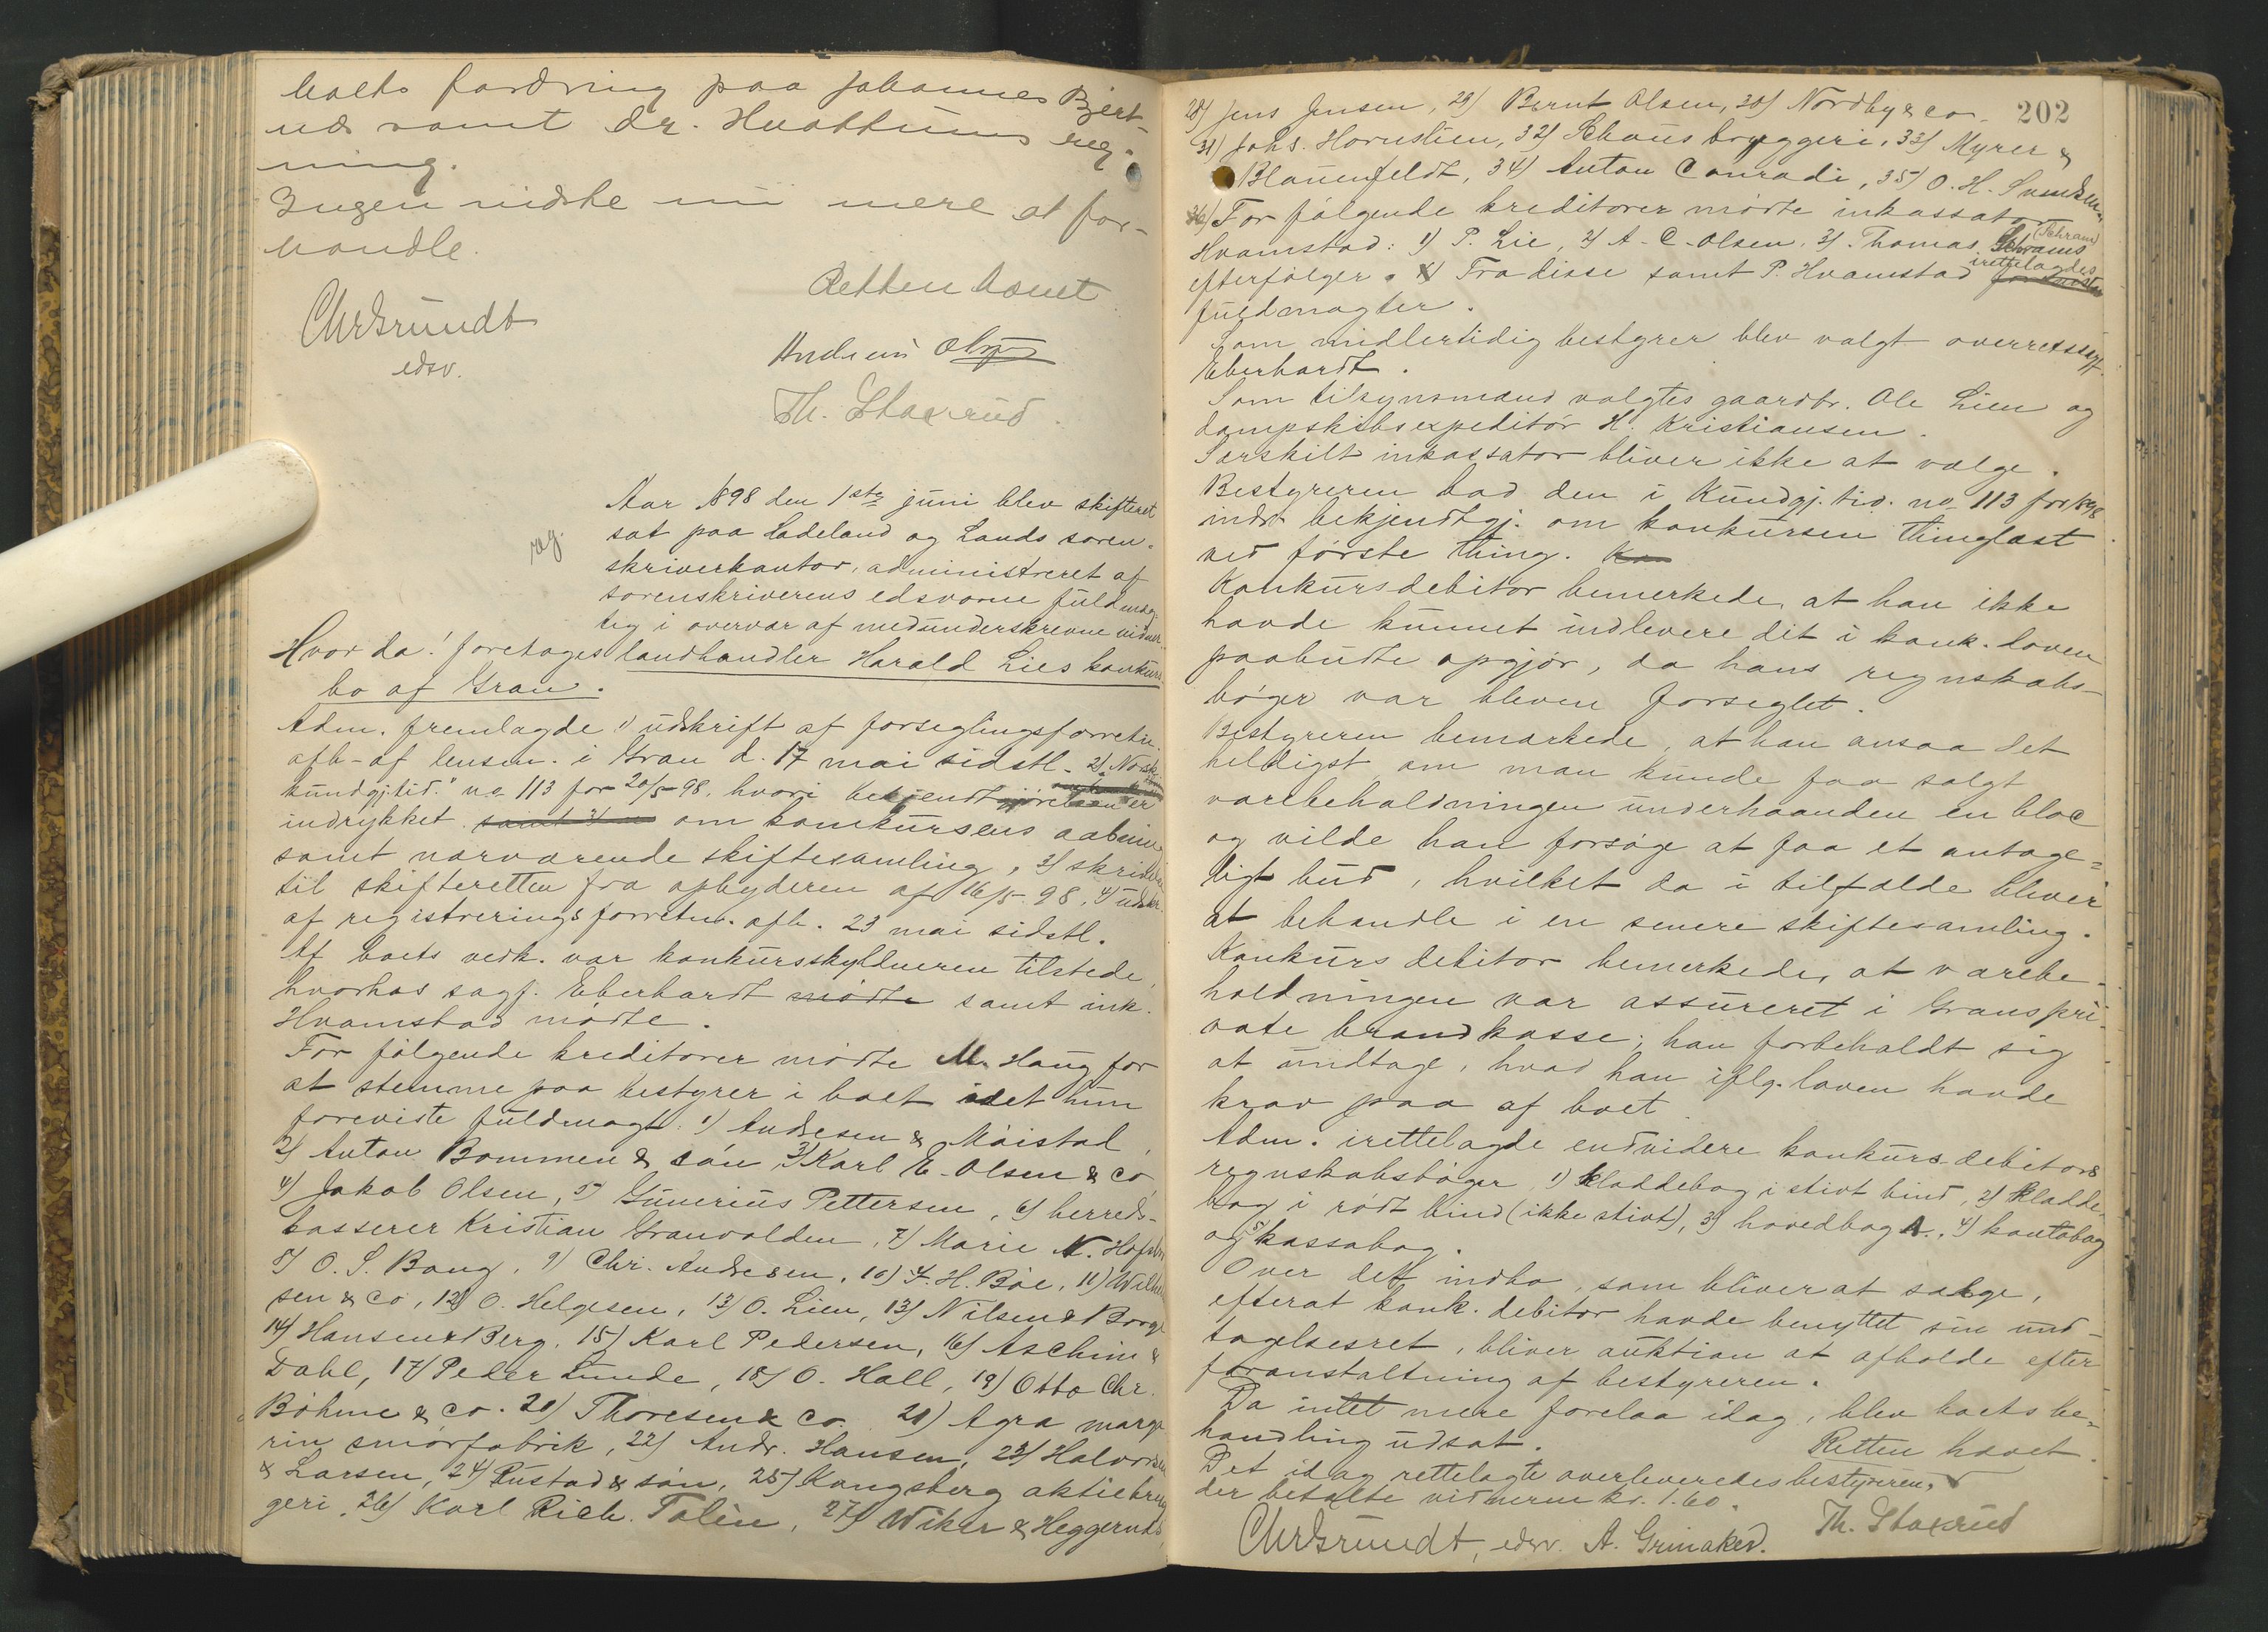 boets fordring paa Johannes Bjert-
ud samt dr. Hvattums reg-
ning.
Ingen vidste nu mere at for-
handle.
Retten hævet
ChrGrundt
edsv.
Th. Staxrud
reg.
Aar 1898 den 1ste juni blev skifteret
sat paa Hadeland og Lands soren-
skriverkontor, administreret af
sorenskriverens edsvorne fuldmæg
tig i overvær af medunderskrevne vidner.
Hvor da! foretages landhandler Harald Lies konkurs
bo af Gran.
Adm. fremlagde 1) udskrift af forseglingsforretn.
afh. af lensm. i Gran d. 17 mai sidstl. 2) Norsk
kundgj.tid." no 113 for 20/5 98, hvori bekjendtgjørelsen er
indrykket samt 3) om konkursens aabning
samt nærværende skiftesamling, 3) skrivelse
til skifteretten fra opbyderen af 16/5 98, 4) udskr.
af registreringsforretn. afh. 23 mai sidstl.
Af boets vedk. var konkursskyldneren tilstede,
hvorhos sagf. Eberhardt mødte samt ink.
Hvamstad mødte.
For følgende kreditorer mødte M. Haug for
at stemme paa bestyrer i boet idet hun
foreviste fuldmagt: 1) Andresen & Moistad,
2) Anton Bommen & søn 3) Karl E. Olsen & co,
4) Jakob Olsen, 5) Gunerius Pettersen, 6) herreds-
kasserer Kristian Granvolden, 7) Marie N.
8) O. S. Bang, 9) Chr. Andresen, 10) F. H. Bøe, 11)
sen & co, 12) O. Helgesen, 13) O. Lien, 13) Nilsen & Borge
14) Hansen & Berg, 15) Karl Pedersen, 16) Aschim &
Dahl, 17) Peder Lunde, 18) O. Hall, 19) Otto Chr.
Bøhme & co. 20) Thoresen & co. 21) Agra marga
rin smørfabrik, 22) Andr. Hansen, 23) Halvorsen
& Larsen, 24) Rustad & søn, 25) Kongsberg aktiebryg
geri, 26) Karl Rich. Tolin, 27) Wiker &
202
28) Jens Jensen, 29) Bernt Olsen, 30) Nordby & co.
31) Johs. Hornslien, 32) Schous bryggeri, 33) Myrer &
Blauenfeldt, 34) Anton Conradi, 35) O. H. Svendsen
36) For følgende kreditorer mødte inkassator
Hvamstad: 1) P. Lie, 2) A. C. Olsen, 3) Thomas Schrams (Schram)
efterfølger. Fra disse samt P. Hvamstad irettelagdes
fuldmagter.
Som midlertidig bestyrer blev valgt overretssagf.
Eberhardt.
Som tilsynsmænd valgtes gaardbr. Ole Lien og
dampskibsexpeditør H. Kristiansen.
Særskilt inkassator bliver ikke at vælge.
Bestyreren bad den i Kundgj. tid. no 113 for 1898
indr. bekjendtgj. om konkursen thinglæst
ved første thing. Ko
Konkursdebitor bemerkede, at han ikke
havde kunnet indlevere dit i konk. loven
paabudte opgjør, da hans regnskabs-
bøger var bleven forseglet.
Bestyreren bemærkede, at han ansaa det
heldigst om man kunde faa solgt
varebeholdningen underhaanden en bloc
og vilde han forsøge at faa et antage-
ligt bud, hvilket da i tilfælde bliver
at behandle i en senere skiftesamling.
Konkurs debitor bemerkede, at varebe-
holdningen var assureret i Grans pri-
vate brandkasse; han forbeholdt sig
at undtage, hvad han iflg. loven havde
krav paa af boet.
Adm. irettelagde endvidere konkurs debitors
regnskabsbøger, 1) kladdebog i stivt bind, 2) kladde-
bog i rødt bind (ikke stivt), 3) hovedbog A., 4) kontobog
og 5) kassabog.
Over det indbo, som bliver at sælge,
efterat konk. debitor havde benyttet sin und-
tagelsesret, bliver auktion at afholde efter
foranstaltning af bestyreren.
Da intet mere forelaa idag, blev boets be-
handling udsat.
Retten hævet.
Det idag rettelagte overleveredes bestyreren,
der betalte vidnerne kr. 1.60.
ChrGrundt, edsv. A. Grinaker. Th. Staxrud